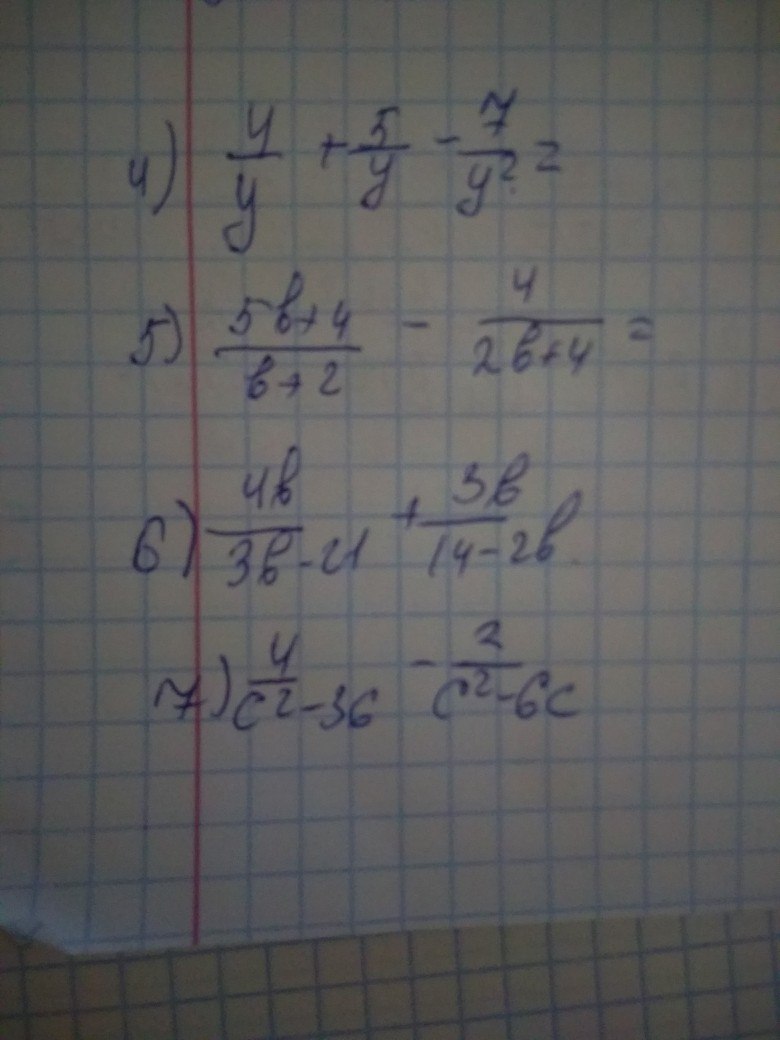 4) 4/y + 5/y - 7/y² =
5) 5в+4/в+2 - 4/2в+4 =
6) 4в/3в-21 + 3в/14-2в
7) 4/c²-36 - 2/c²-6c